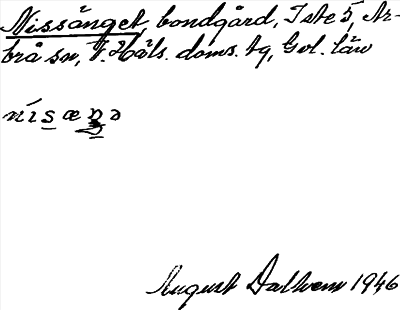 Nissänget, bondgård, Iste 5, Ar-
brå sn, V. Häls. doms. tg, Gvl. län
nisæŋə
August Dalhem 1946